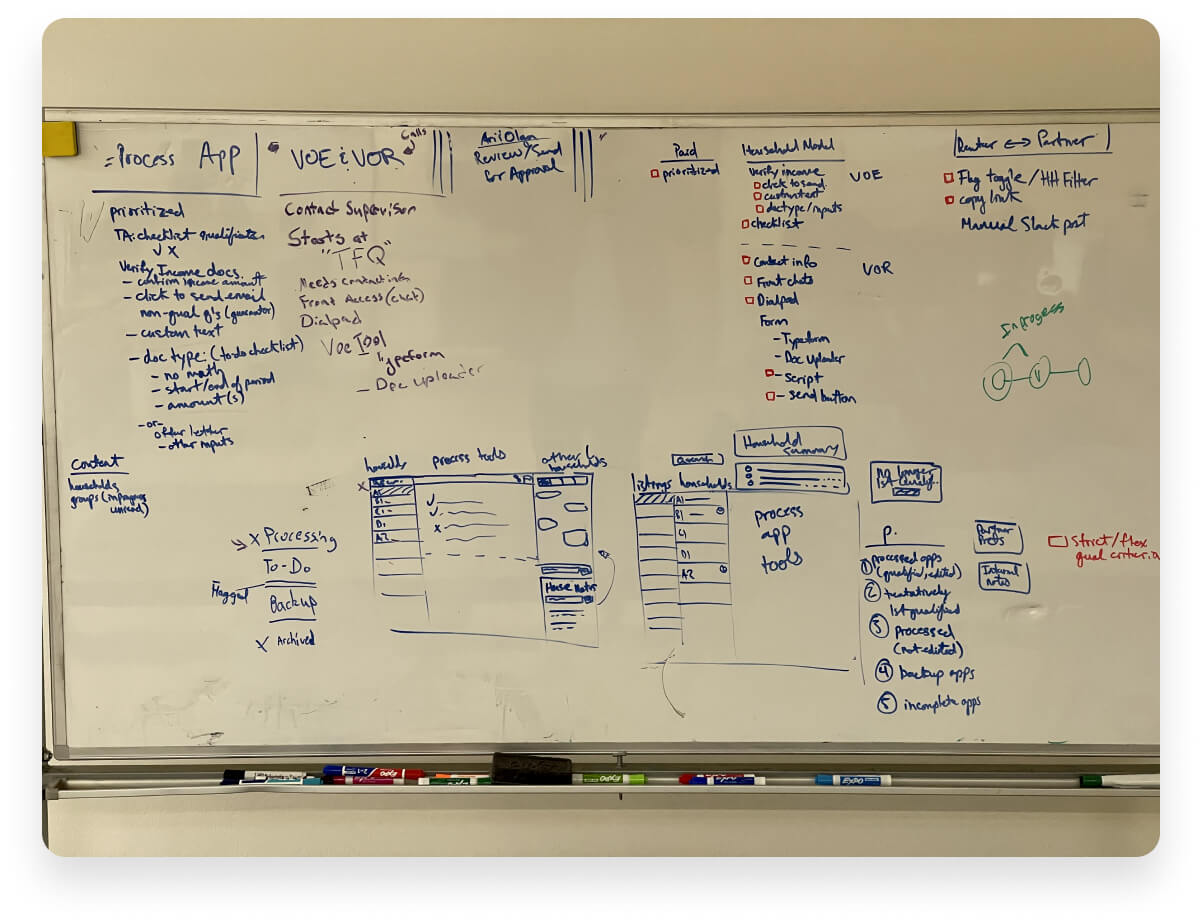 Process App
prioritized
TA: checklist qualification
✓ X
Verify Income docs.
- confirm income amount
- click to send email
non-qual q's (guarantor)
- custom text
- doc type: (todo checklist)
- no math
- start/end of period
- amount(s)
-or-
offer letter
- other inputs
VOE & VOR
Calls
Contact Supervisor
Starts at
"TFQ"
Needs contact info
Front Access (chat)
Dialpad
Voe Tool
Typeform
- Doc uploader
Review/Send
for Approval
Paid
prioritized
Household Model
Verify income
click to send
custom text
doctype/inputs
checklist
VOE
Contact info
Front chats
Dialpad
Form
- Typeform
- Doc Uploader
- script
- send button
VOR
Renter <-> Partner
Flag toggle/HH Filter
copy link
Manual Slack post
In progress
Content
households
groups (in progress,
unread)
X Processing
To-Do
Flagged
Backup
X Archived
process tools
other
households
A1
B1
C1
D1
A2
House Notes
search
listings
households
A1
B1
C1
D1
A2
Household
Summary
process
app
tools
no longer
P.
1 processed apps
(qualified, edited)
2 tentatively
1st qualified
3 processed
(not edited)
4 backup apps
5 incomplete apps
Partner
Prefs
Internal
notes
Strict/flex
qual criteria
EXPO
EXPO
EXPO